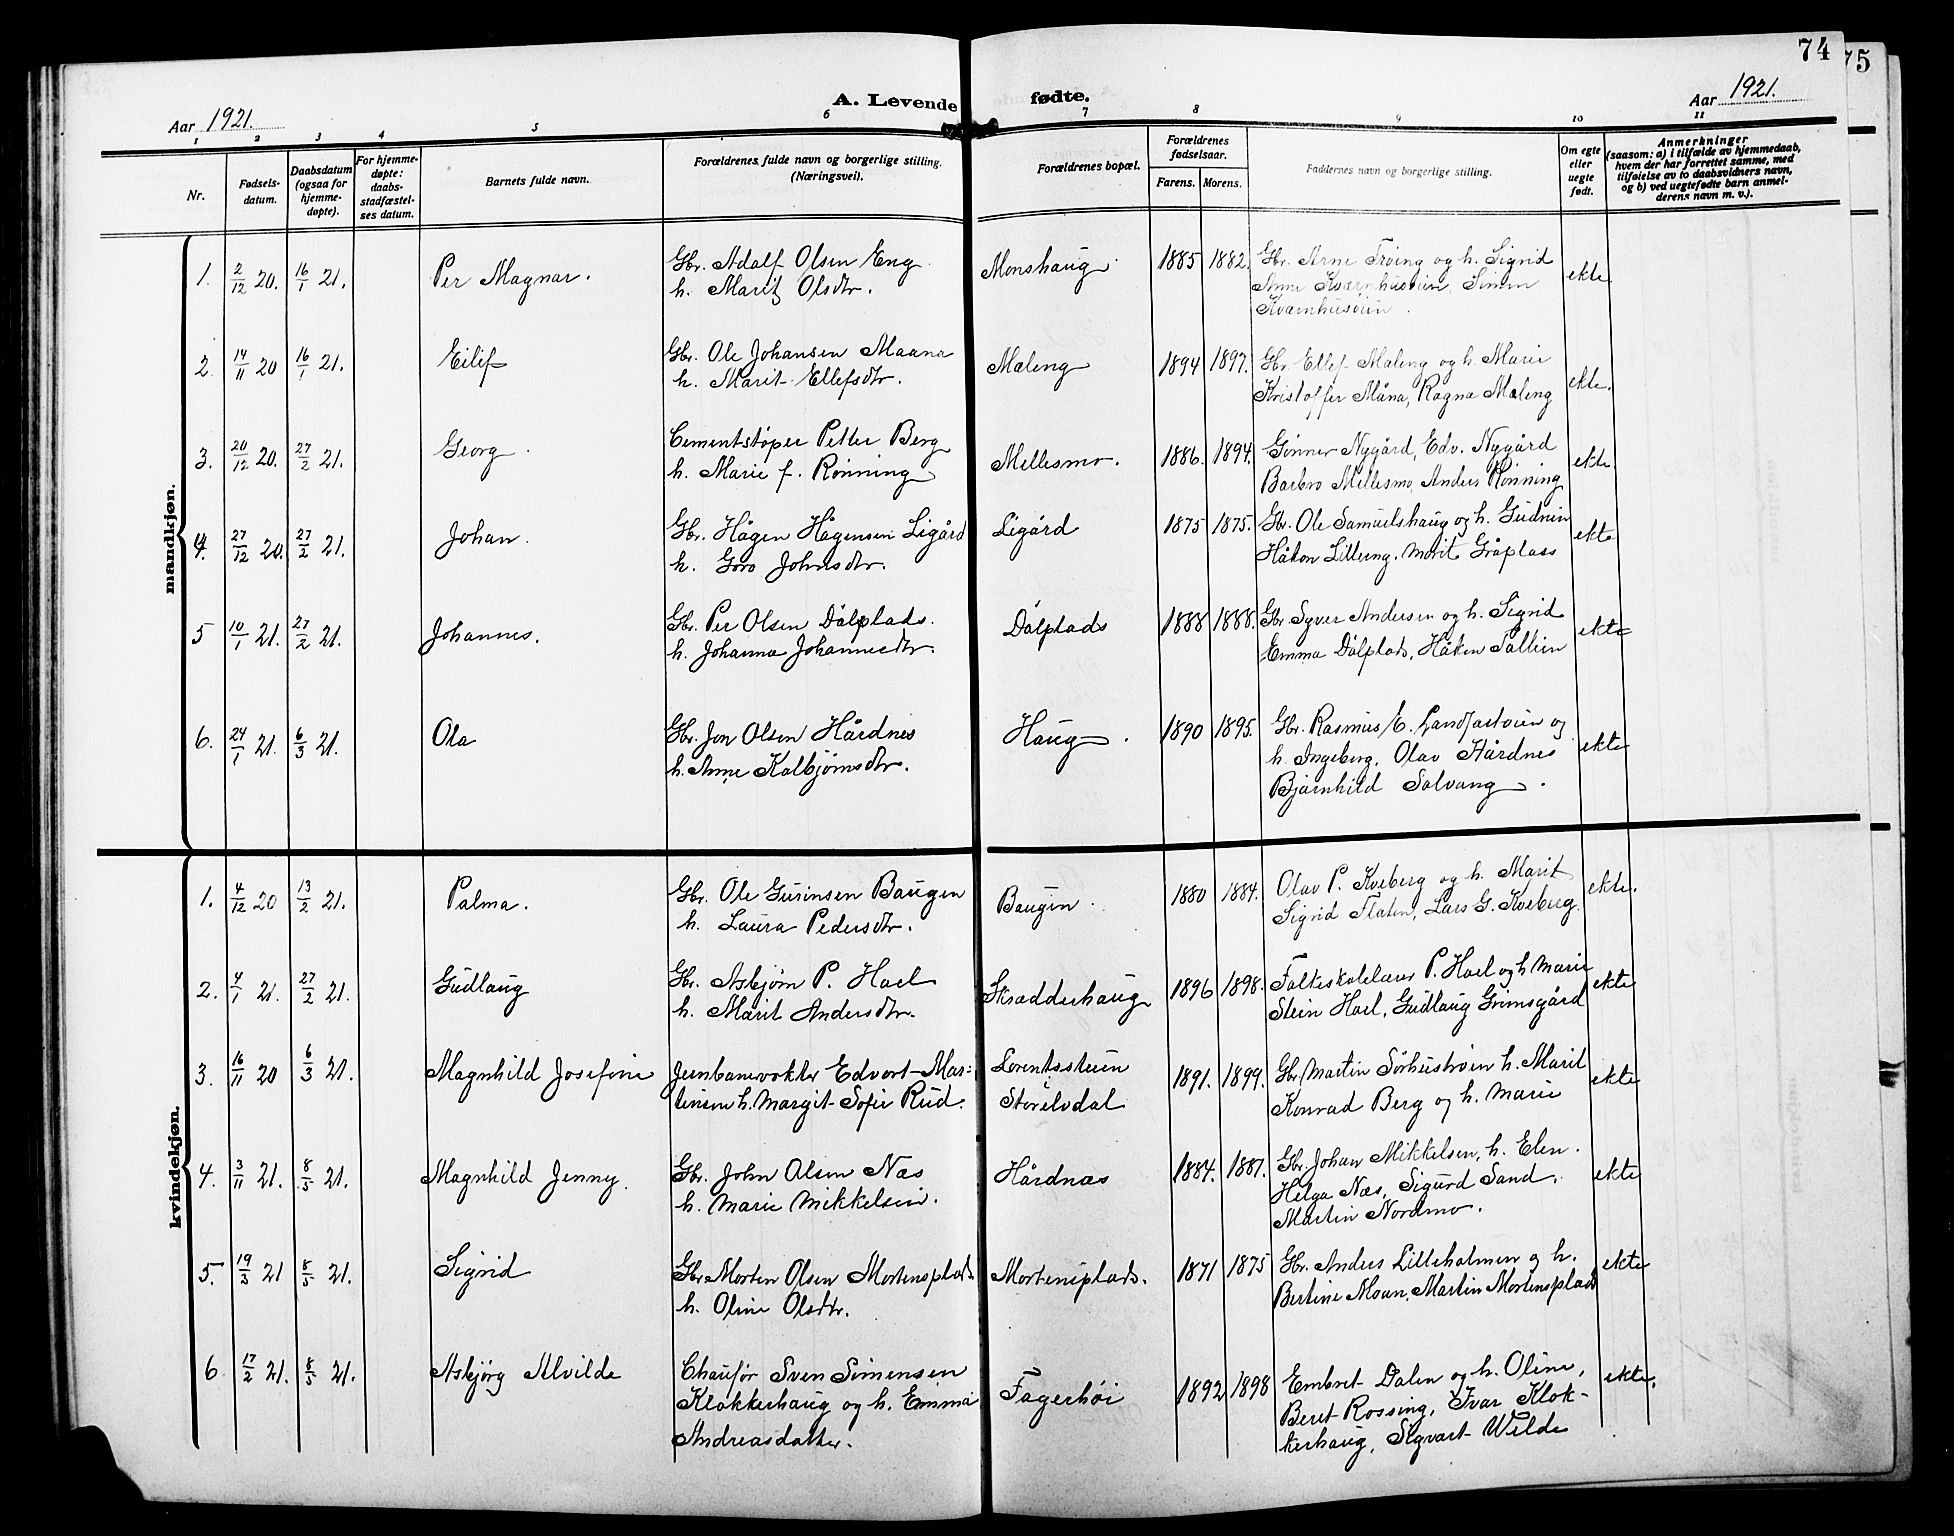 74
75
Aar 1921.
A. Levende fødte.
Aar 1921.
1 2 3 4 5 6 7 8 9 10 11
Nr.
Fødsels-
datum.
Daabsdatum
(ogsaa for
hjemme-
døpte).
For hjemme-
døpte:
daabs-
stadfæstel-
ses datum.
Barnets fulde navn.
Forældrenes fulde navn og borgerlige stilling.
(Næringsvei).
Forældrenes bopæl.
Forældrenes
fødselsaar.
Farens. Morens.
Faddernes navn og borgerlige stilling.
Om egte
eller
uegte
født.
Anmerkninger
(saasom: a) i tilfælde av hjemmedaab,
hvem der har forrettet samme, med
tilføielse av to daabsvidners navn,
og b) ved uegtefødte barn anmel-
derens navn m. v.).
mandkjøn.
1. 2/12 20. 16/1 21. Per Magnar. Gbr. Adolf Olsen Eng h. Marit Olsdtr. Monshaug. 1885 1882. Gbr. Arne Trøing og h. Sigrid
Anne Kværnhusøien, Simen
Kværnhusøien. ekte.
2. 14/11 20 16/1 21. Eilif Gbr. Ole Johansen Maana h. Marit Ellefsdtr. Maleng 1894 1897. Gbr. Ellef Maleng og h. Marie
Kristoffer Måna, Ragna Maleng ekte.
3. 20/12 20. 27/2 21. Georg. Cementstøper Petter Berg h. Marie f. Rønning Mellesmo. 1886. 1894. Gunner Nygård, Edv. Nygård
Barbro Mellesmo, Anders Rønning ekte.
4. 27/12 20. 27/2 21. Johan. Gbr. Hågen Hågensen Ligård h. Goro Johnsdtr. Ligård 1875 1875. Gbr. Ole Samuelshaug og h. Gudnun
Håkon Lilleeng, Marit Gråplass ekte
5 10/1 21. 27/2 21. Johannes. Gbr. Per Olsen Dølplads. h. Johanna Johannesdtr. Dølplads 1888 1888. Gbr. Syver Andersen og h. Sigrid
Emma Dølplads, Håken Tallien ekte
6. 24/1 21. 6/3 21. Ola Gbr. Jon Olsen Hårdnes h. Anne Kolbjørnsdtr. Haug. 1890 1895. Gbr. Rasmus E. Landfastøien og
h. Ingeberg. Olav Hårdnes
Bjørnhild Solvang. ekte
kvindekjøn.
1. 4/12 20 13/2 21. Palma. Gbr. Ole Gurinsen Baugen h. Laura Pedersdtr. Baugen. 1880 1884. Olav P. Kveberg og h. Marit
Sigrid Flaten, Lars G. Kveberg. ekte.
2. 4/1 21. 27/2 21. Gudlaug Gbr. Asbjørn P. Hoel h. Marit Andersdtr. Skrædderhaug 1896 1898. Folkeskolelærer P. Hoel og h Marie
Stein Hoel, Gudlaug Grimsgård ekte
3. 16/11 20 6/3 21. Magnhild Josefine Jernbanevokter Edvart Mar-
tinsen h. Margit Sofie Rud. Lorentsstuen
i
Storelvdal 1891. 1899. Gbr. Martin Sørhustrøen h. Marit
Konrad Berg og h. Marie ekte
4. 3/11 21. 8/5 21. Magnhild Jenny. Gbr. John Olsen Næs h. Marie Mikkelsen. Hårdnæs 1884. 1887. Gbr. Johan Mikkelsen, h. Elen.
Helga Næs, Sigurd Sand,
Martin Nordmo. ekte
5. 19/3 21 8/5 21. Sigrid Gbr. Morten Olsen Mortensplads. h. Oline Olsdtr. Mortensplads. 1871 1875 Gbr. Anders Lilleholmen og h.
Bertine Moan. Martin Mortensplads ekte
6 17/2 21. 8/5 21. Asbjørg Alvilde Chaufør Sven Simensen
Klokkerhaug og h. Emma
Andreasdatter. Fagerhøi 1892 1898 Embret Dalen og h. Oline,
Beret Rossing, Ivar Klok-
kerhaug, Sigvart Wilde ekte.